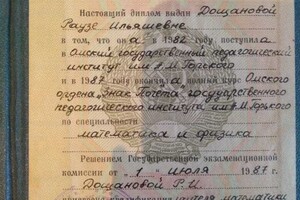 Настоящий диплом выдан Дощановой
Раузе Ильяшевне
в том, что он а в 1982 году поступил а
в Омский государственный педагогический
институт им А.М.Горького
и в 1987 году окончил а полный курс Омского
ордена "Знак Почета" государственного
педагогического института им А.М.Горького
по специальности
математика и физика
Решением Государственной экзаменационной
комиссии от " 1 " июля 1987 г.
Дощановой Р.И.
квалификация учителя математики